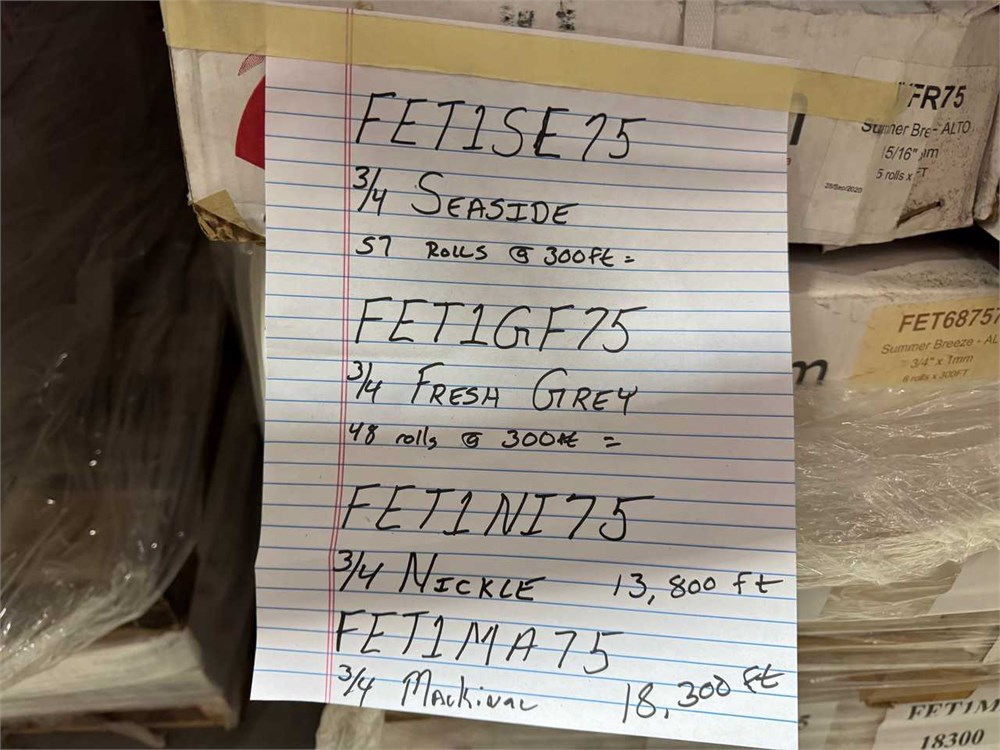 FET1SE75
3/4 SEASIDE
57 ROLLS @ 300ft =
FET1GF75
3/4 FRESH GREY
48 rolls @ 300ft =
FET1NI75
3/4 NICKLE 13,800 ft
FET1MA75
3/4 Mackinac 18,300 ft
FR75
Summer Bre- ALTO
15/16"
5 rolls x
28/Sep/2020
FET68757
Summer Breeze - AL
3/4" x 1mm
6 rolls x 300FT
m
FET1M
18300